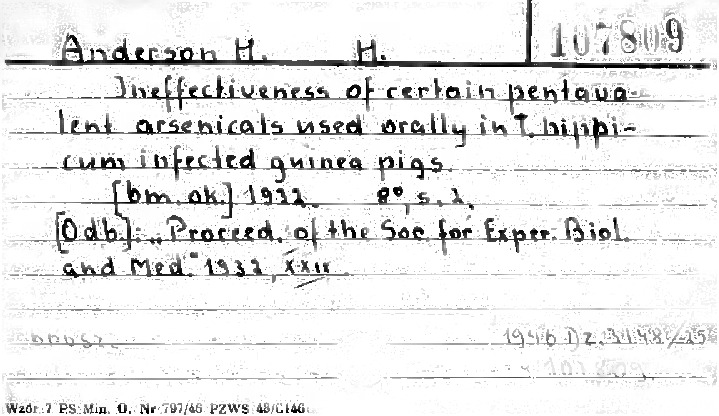 107809
Anderson H. H.
Ineffectiveness of certain pentava-
lent arsenicals used orally in T. hippi-
cum infected guinea pigs.
[bm. ok.] 1932. 8°, s. 2.
[Odb.]: „Proceed. of the Soc. for Exper. Biol.
and Med." 1932, XXIX.
1946 Dz.
Wzór 7 PS Min. O. Nr 797/46 PZWS 48/C146